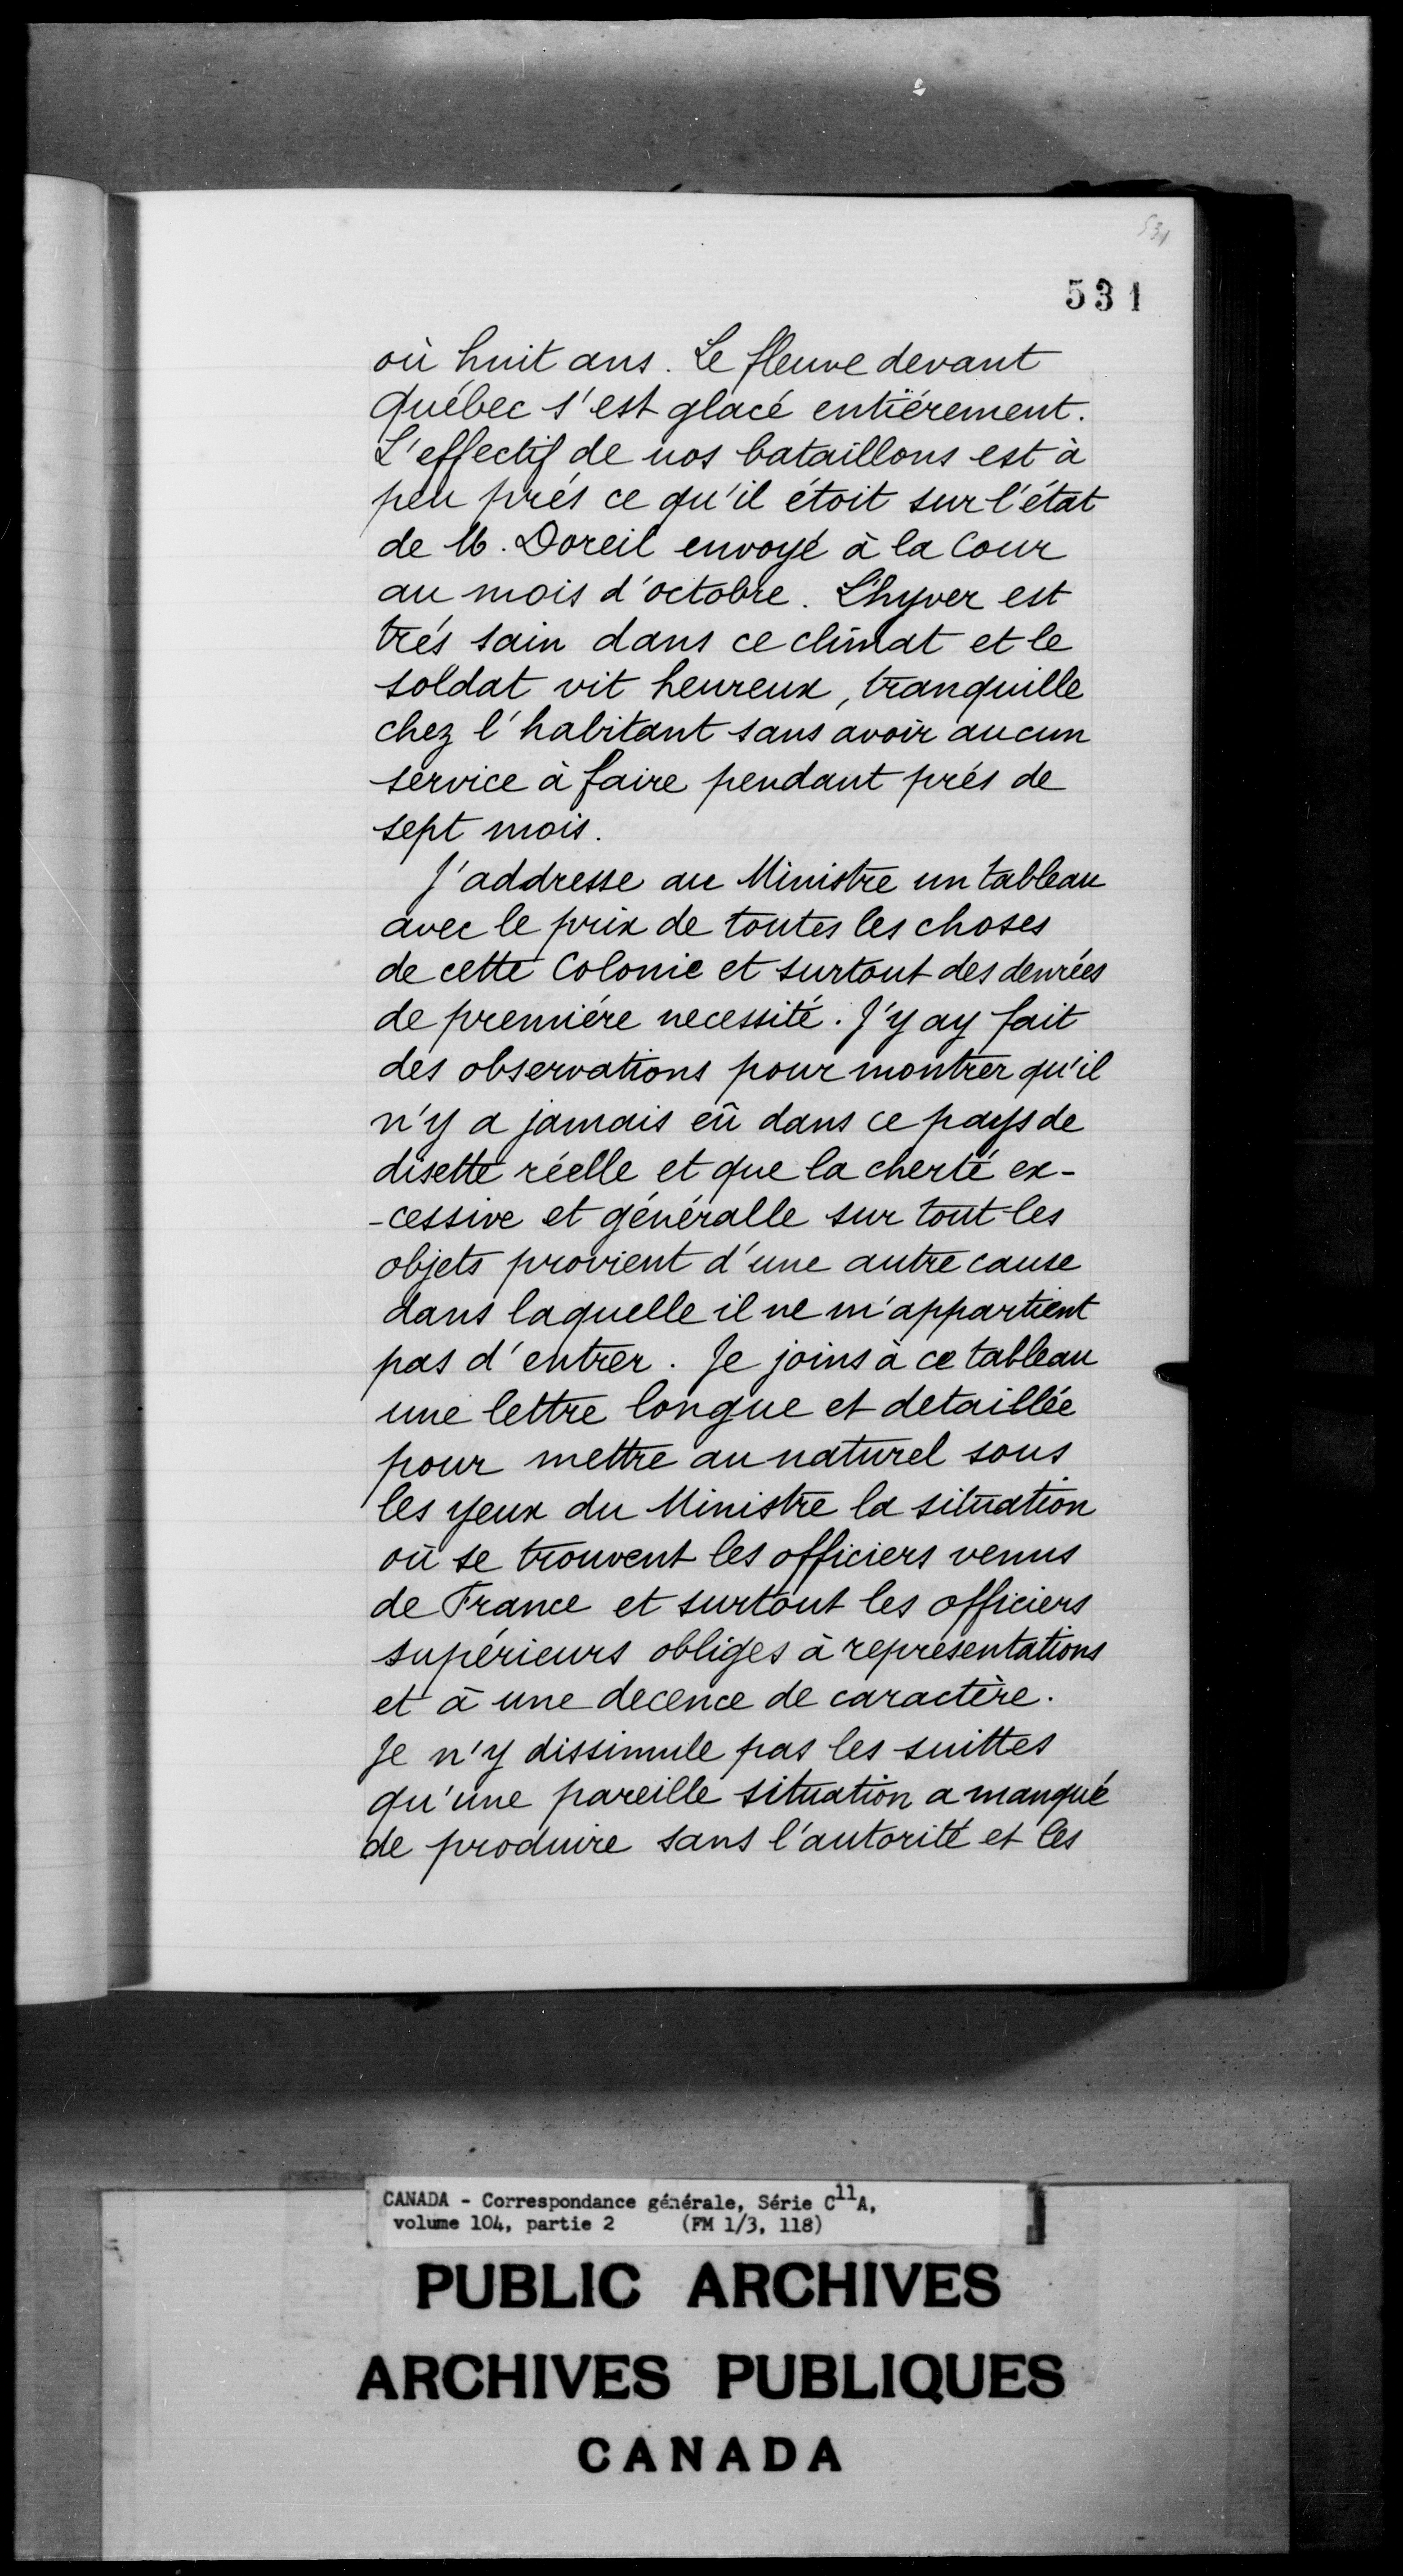 531
531
où huit ans. Le fleuve devant
Québec s'est glacé entiérement.
L'effectif de nos bataillons est à
peu prés ce qu'il étoit sur l'état
de M. Doreil envoyé à la Cour
au mois d'octobre. L'hyver est
trés sain dans ce climat et le
soldat vit heureux, tranquille
chez l'habitant sans avoir aucun
service à faire pendant prés de
sept mois.
J'addresse au Ministre un tableau
avec le prix de toutes les choses
de cette Colonie et surtout des denrées
de premiére necessité. J'y ay fait
des observations pour montrer qu'il
n'y a jamais eû dans ce pays de
disette réelle et que la cherté ex-
-cessive et généralle sur tout les
objets provient d'une autre cause
dans laquelle il ne m'appartient
pas d'entrer. Je joins à ce tableau
une lettre longue et detaillée
pour mettre au naturel sous
les yeux du Ministre la situation
où se trouvent les officiers venus
de France et surtout les officiers
supérieurs obligés à représentations
et à une decence de caractère.
Je n'y dissimule pas les suittes
qu'une pareille situation a manqué
de produire sans l'autorité et les
CANADA - Correspondance générale, Série C11A,
volume 104, partie 2 (FM 1/3, 118)
PUBLIC ARCHIVES
ARCHIVES PUBLIQUES
CANADA